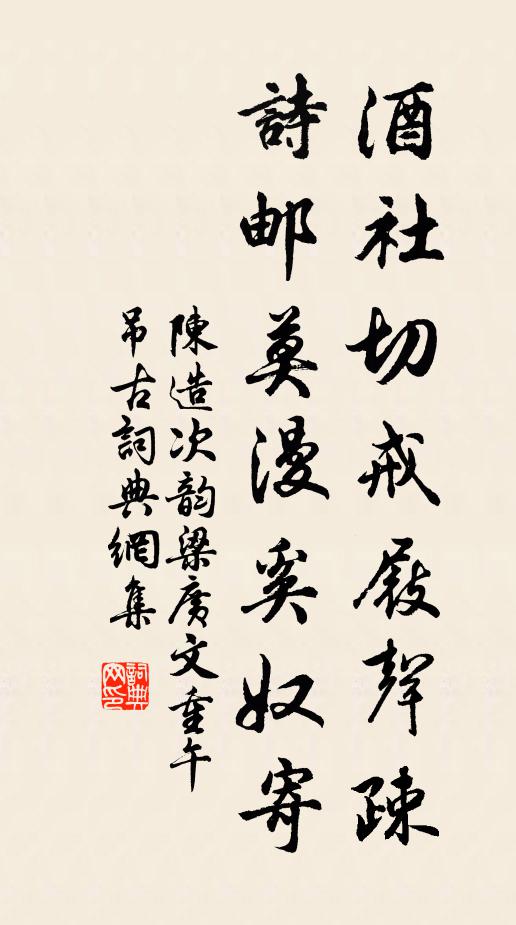 酒社切戒屐聲疎
詩邮莫漫奚奴寄
陳造次韵梁廣文重午
吊古詞典網集
詞典
网印